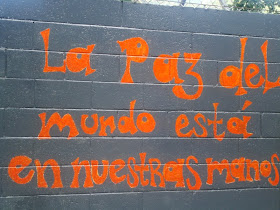 La Paz del
mundo está
en nuestras manos